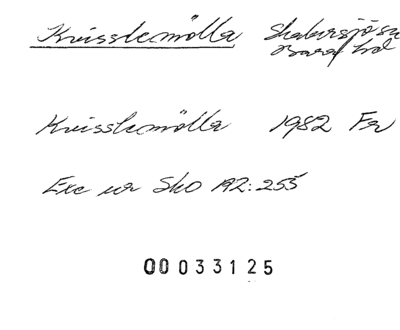 Kvisslemölla Skabersjö sn
Bara hd
Kvisslemölla 1982 Fr
Exc ur Sko 192:255
00033125